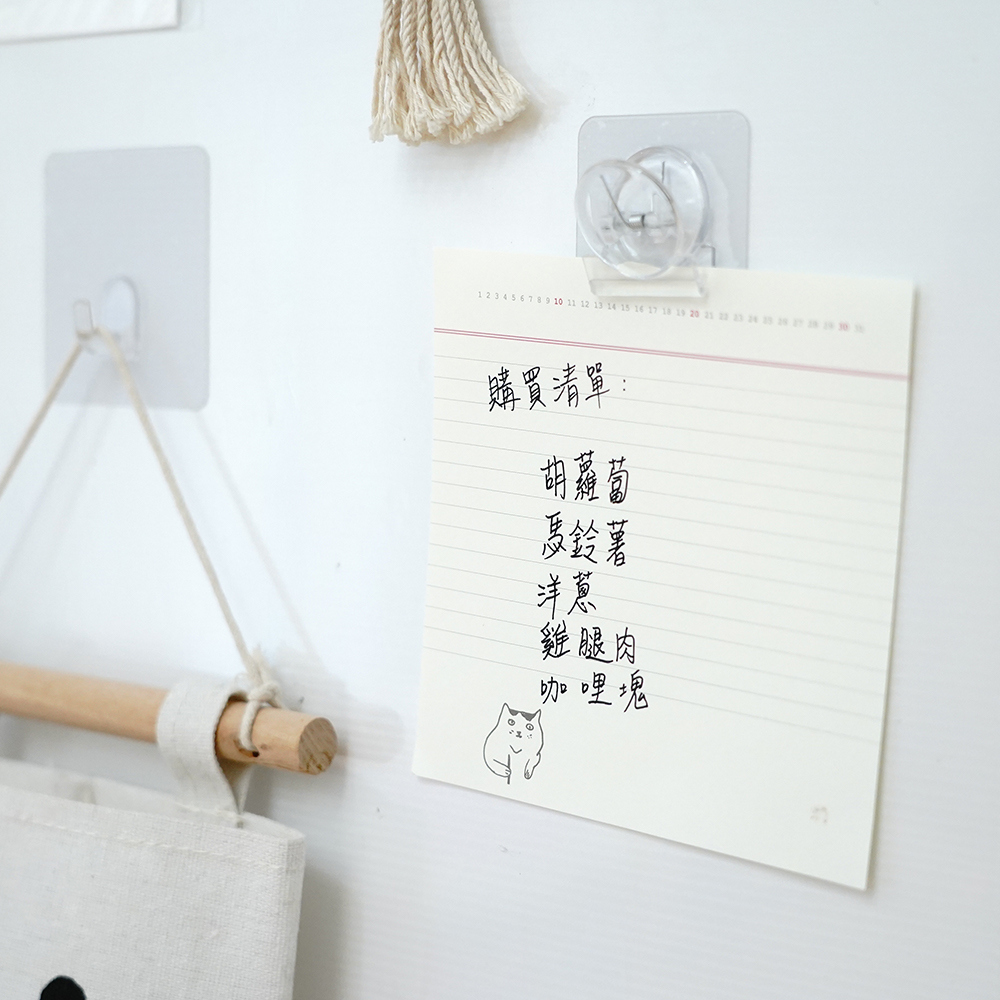 1 2 3 4 5 6 7 8 9 10 11 12 13 14 15 16 17 18 19 20 21 22 23 24 25 26 27 28 29 30 31
購買清單：
胡蘿蔔
馬鈴薯
洋蔥
雞腿肉
咖哩塊